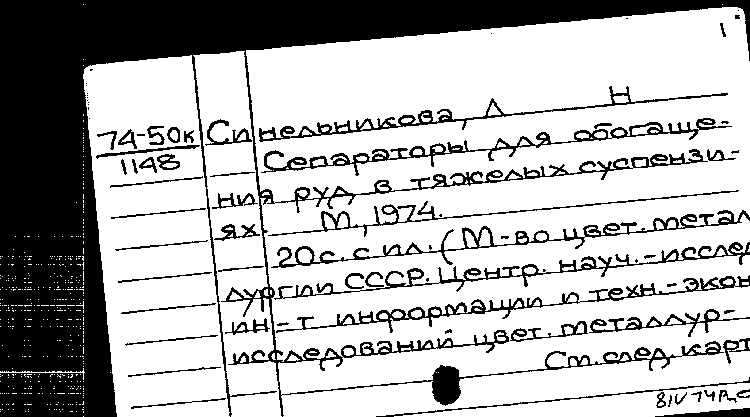 1
74-50к Синельникова, Л Н
1148 Сепараторы для обогаще-
ния руд в тяжелых суспензи-
ях. М., 1974.
20с. с ил. (М-во цвет. метал
лургии СССР. Центр. науч.-исслед
ин-т информации и техн.-экон
исследований цвет. металлур-
См. след. карт